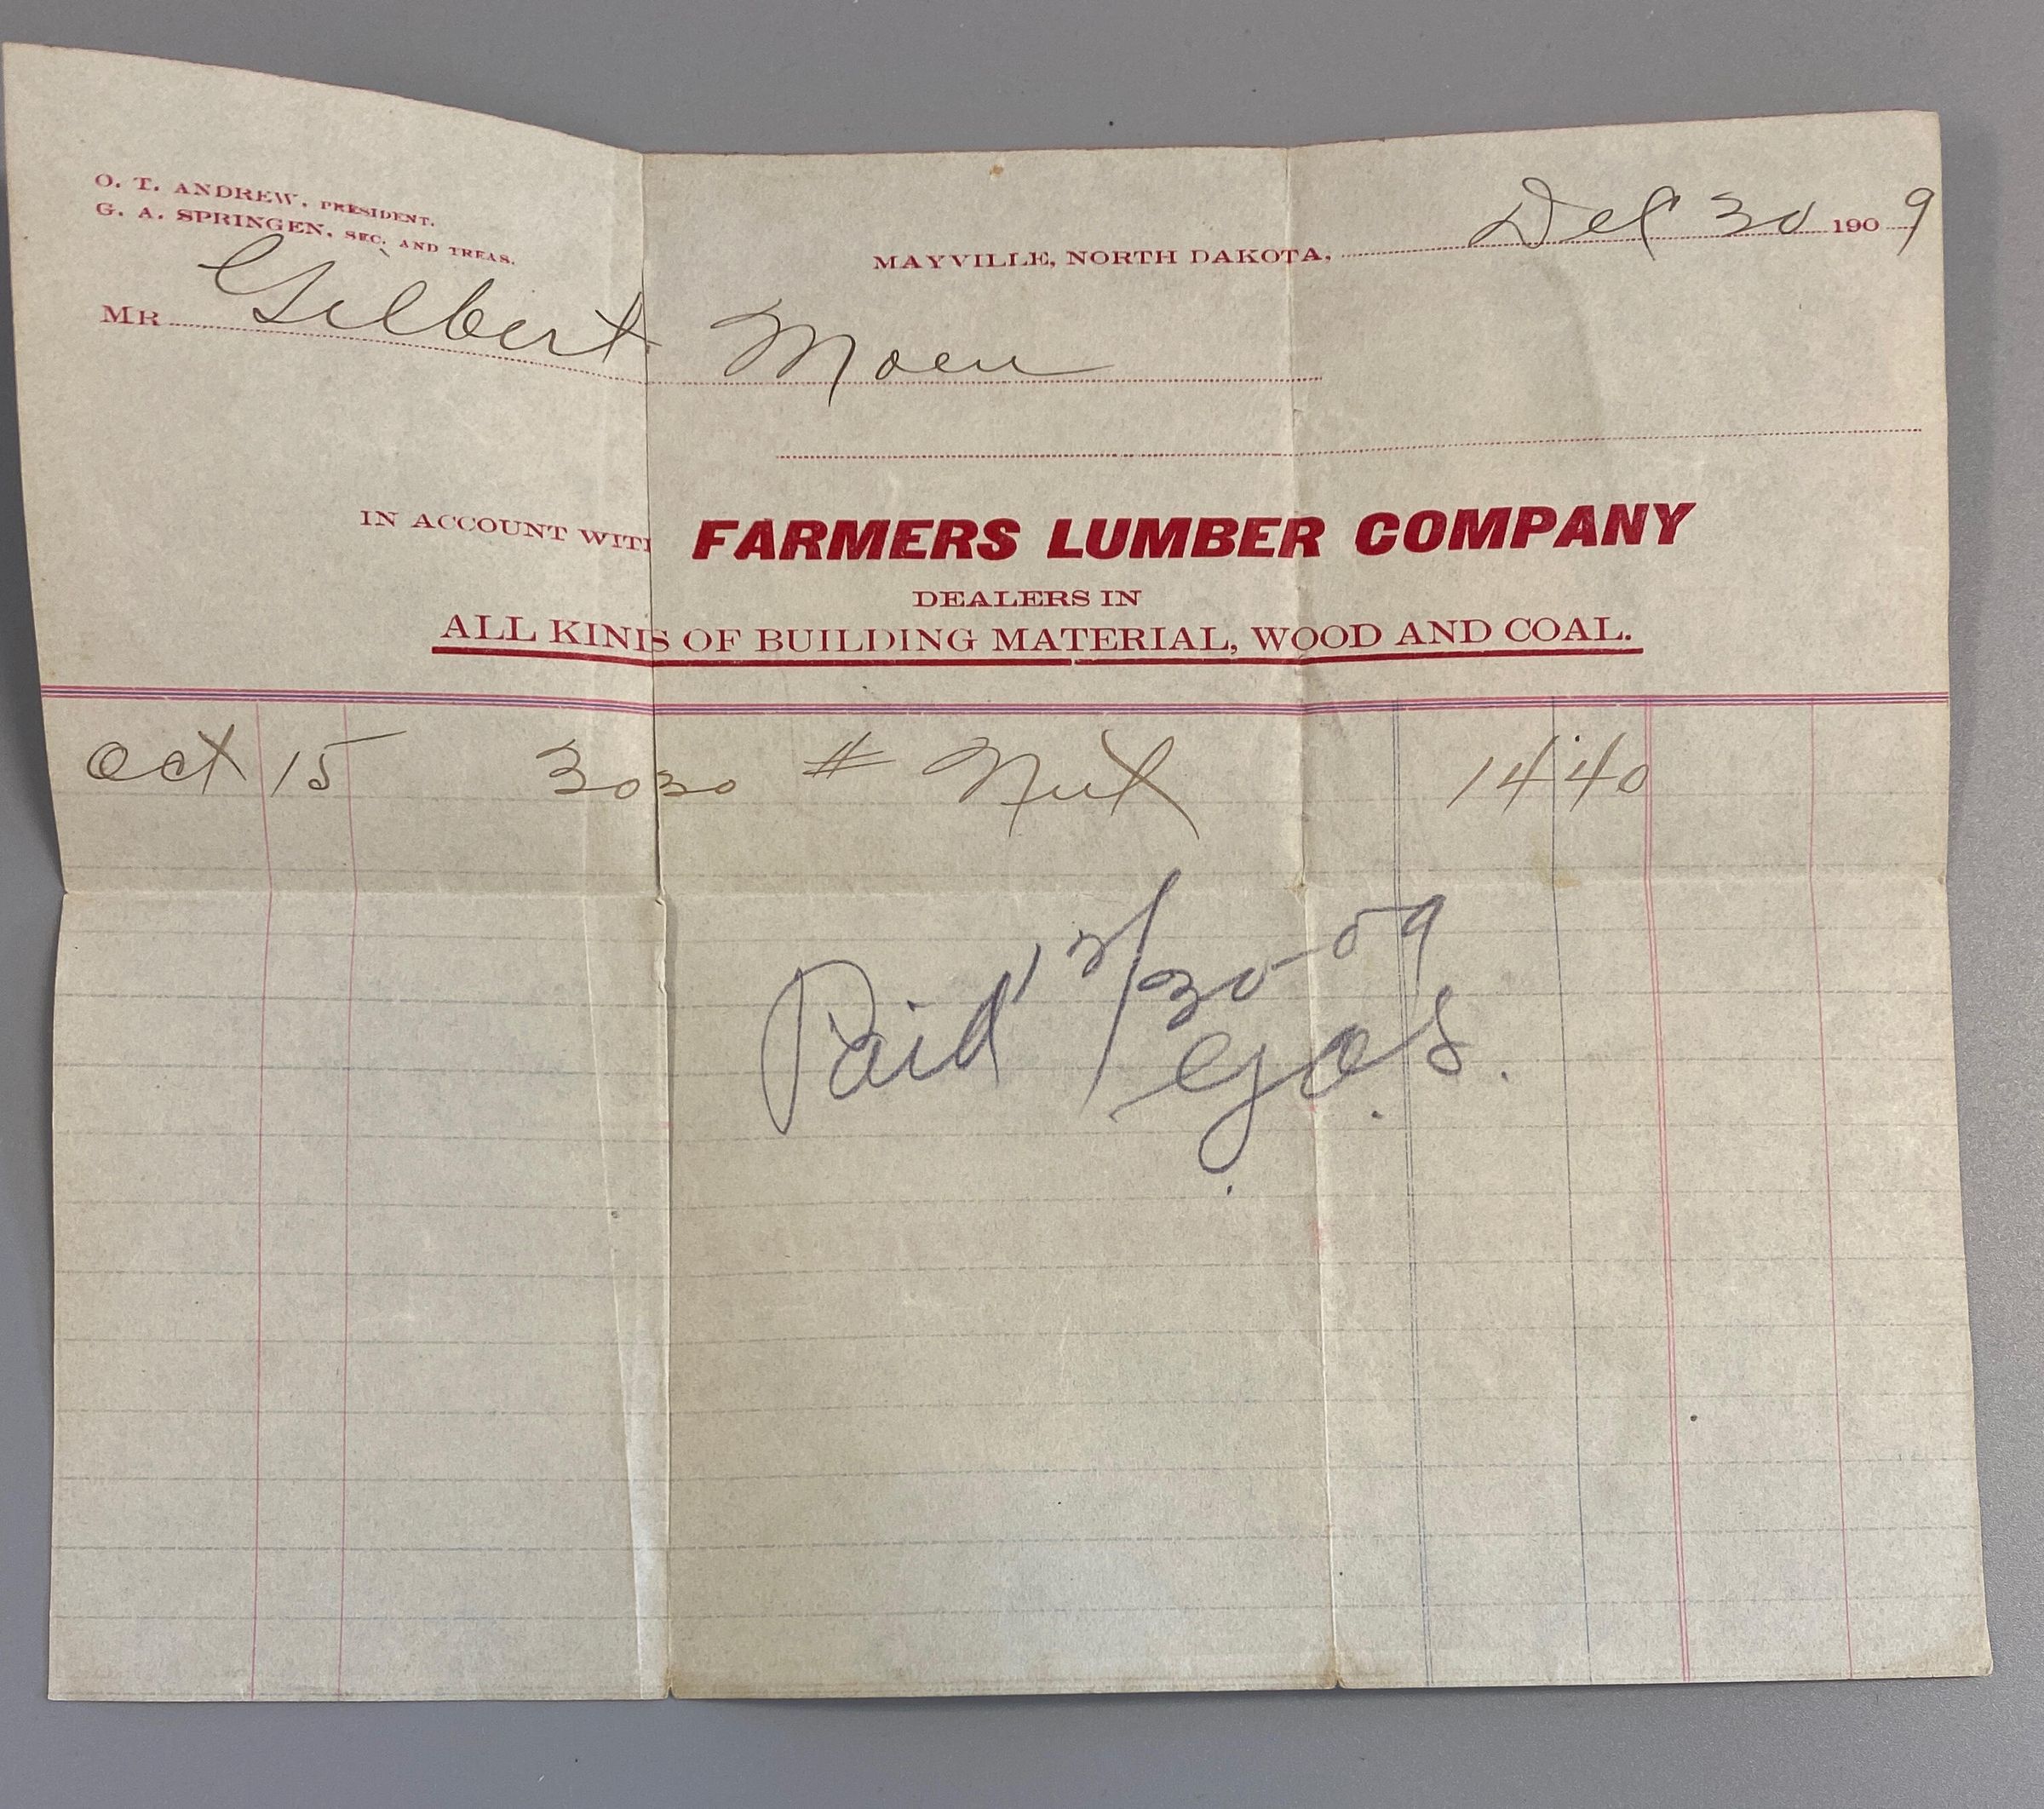 O. T. ANDREW, PRESIDENT.
G. A. SPRINGEN, SEC. AND TREAS.
MAYVILLE, NORTH DAKOTA, Dec 30 1909
MR Gilbert Moen
IN ACCOUNT WITH FARMERS LUMBER COMPANY
DEALERS IN
ALL KINDS OF BUILDING MATERIAL, WOOD AND COAL.
Oct 15 3030 # Nut 14 40
Paid 12/30-09
G.A.S.